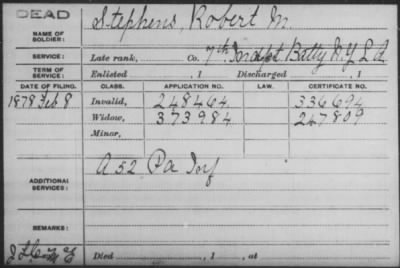 DEAD
NAME OF SOLDIER: Stephens, Robert M.
SERVICE: Late rank, Co. 7th Indpt. Batty N.Y. L.A.
TERM OF SERVICE: Enlisted , 1 Discharged , 1
DATE OF FILING. CLASS. APPLICATION NO. LAW. CERTIFICATE NO.
1878 Feb 8 Invalid, 248464 336694
Widow, 373984 247809
Minor,
ADDITIONAL SERVICES: A 52 Pa Inf
REMARKS:
Died , 1 , at